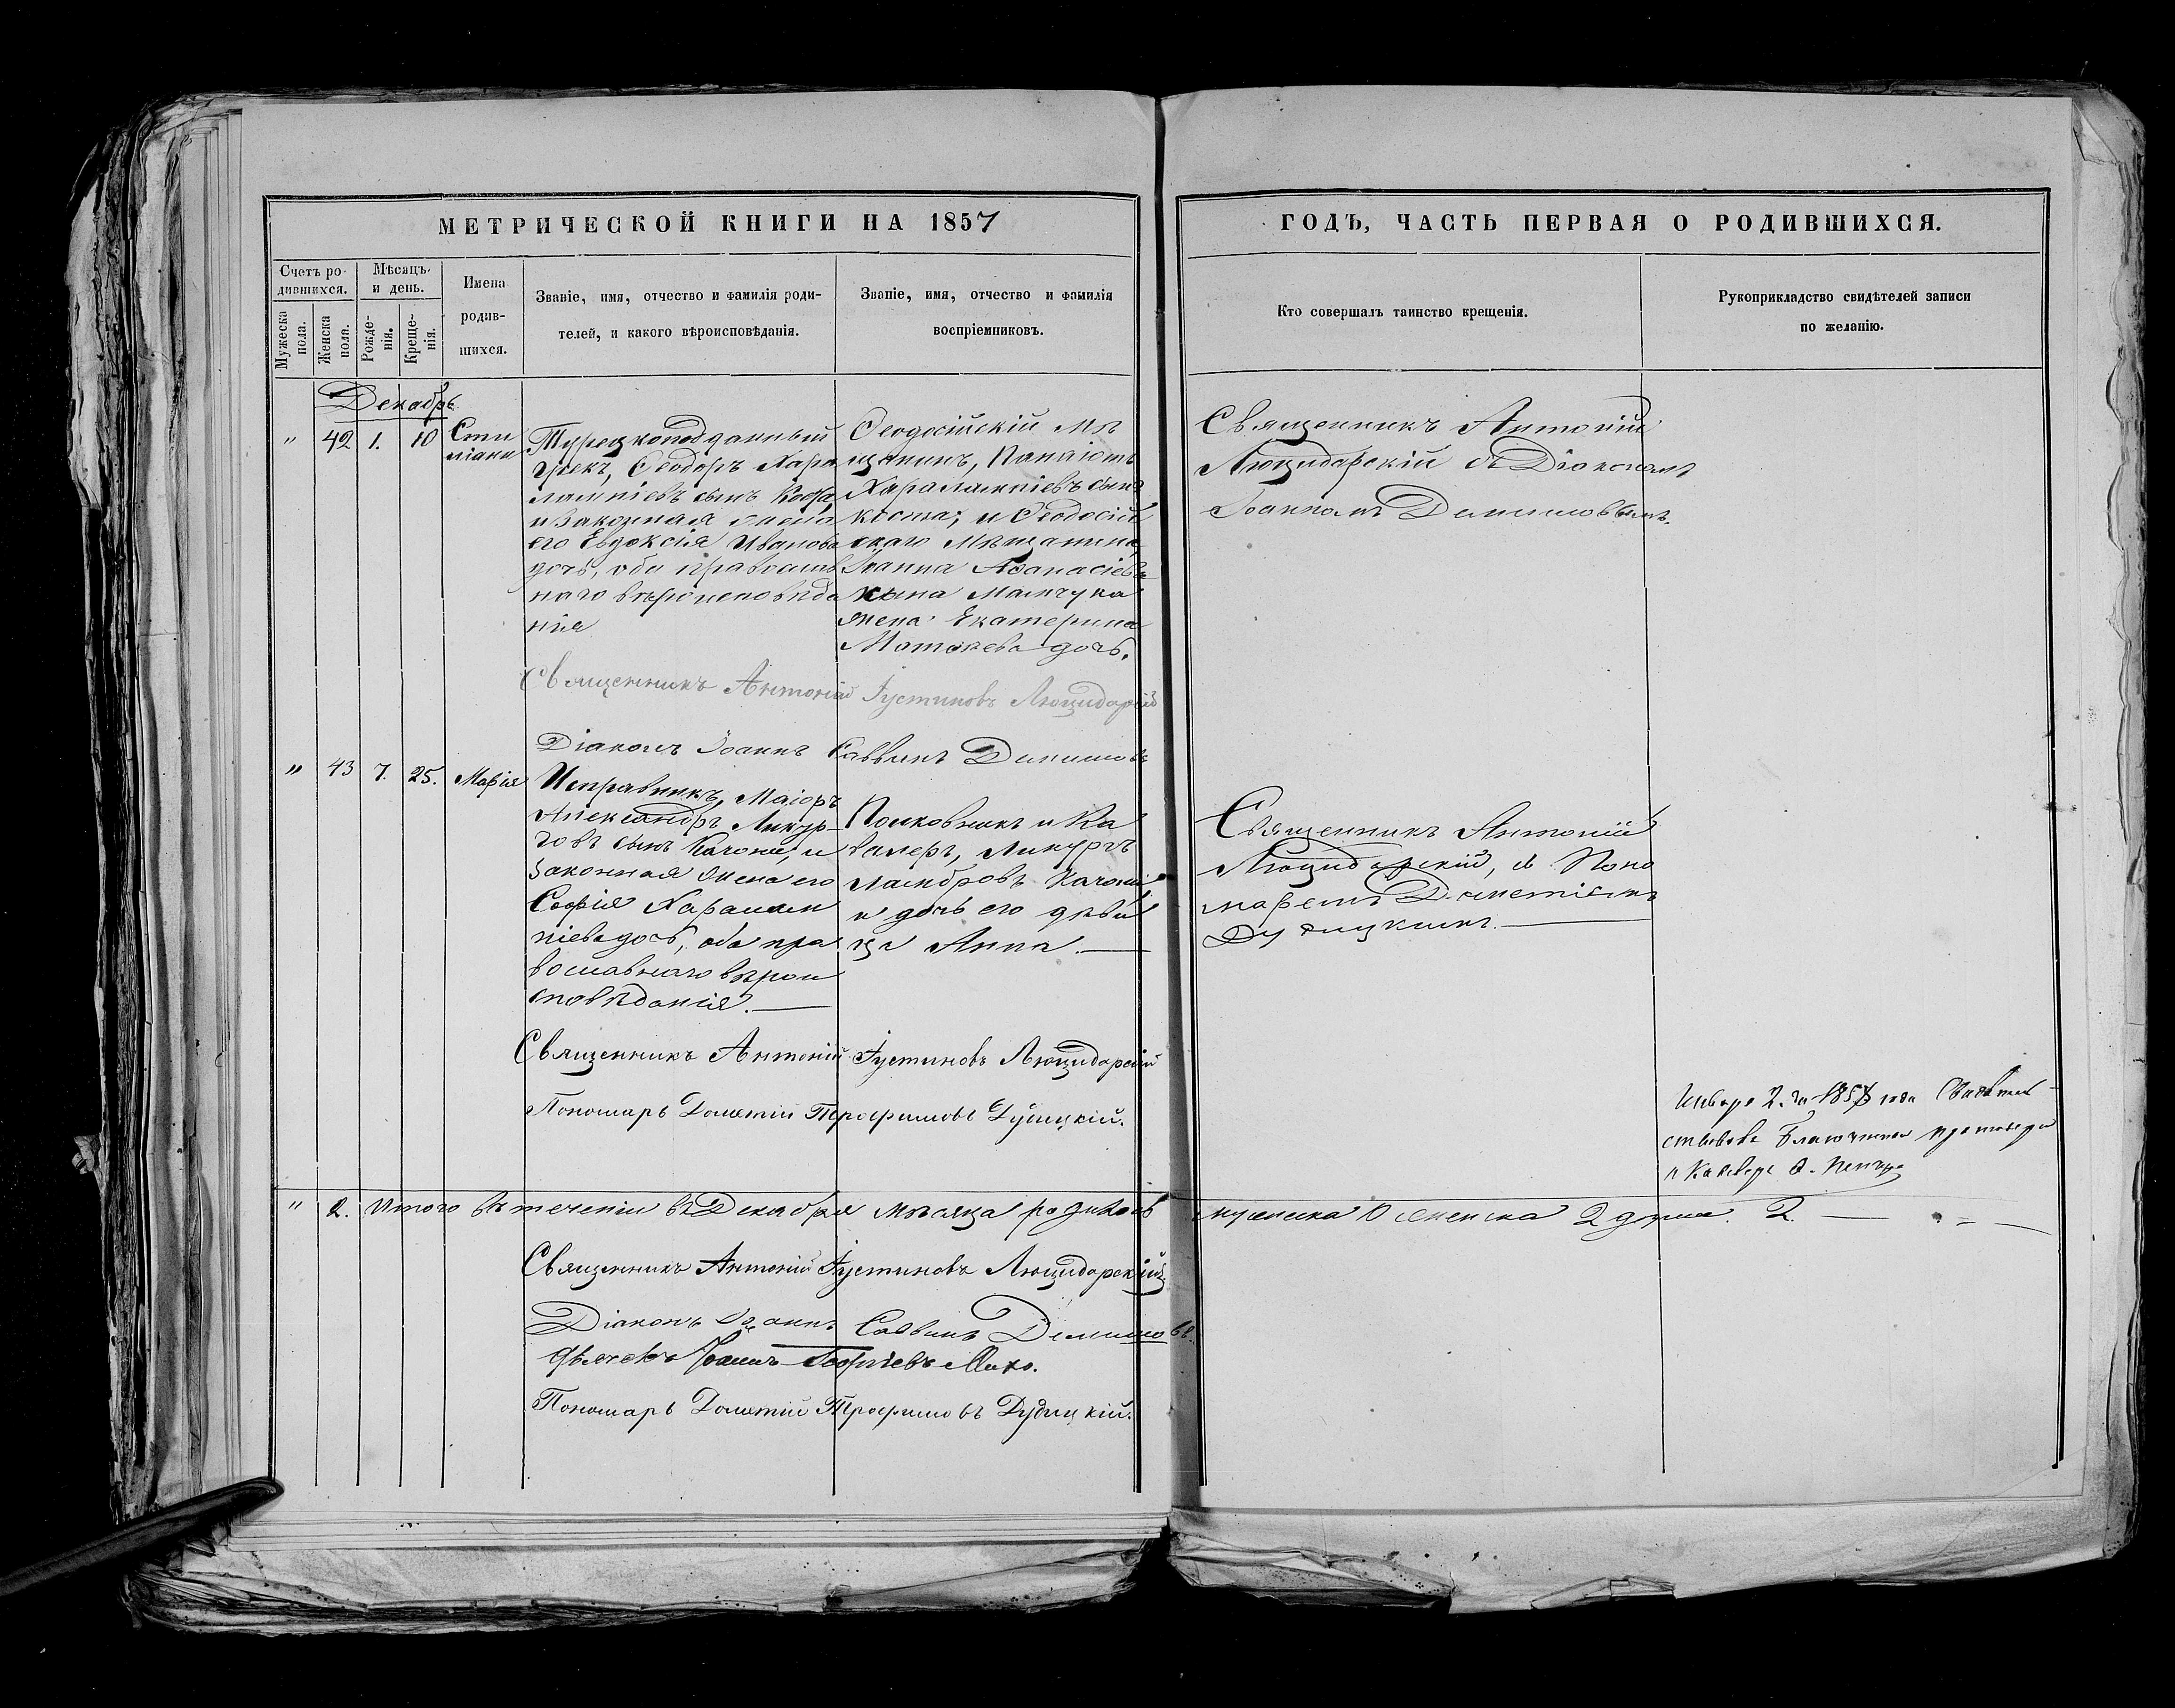 МЕТРИЧЕСКОЙ КНИГИ НА 1857
ГОДЪ, ЧАСТЬ ПЕРВАЯ О РОДИВШИХСЯ.
Счетъ ро-
дившихся.
Мужеска
пола.
Женска
пола.
Мѣсяцъ
и день.
Рожде-
нія.
Креще-
нія.
Имена
родив-
шихся.
Званіе, имя, отчество и фамилія роди-
телей, и какого вѣроисповѣданія.
Званіе, имя, отчество и фамилія
воспріемниковъ.
Кто совершалъ таинство крещенія.
Рукоприкладство свидѣтелей записи
по желанію.
Декабрь
" 42 1. 10
Сти
ліани
Турецкоподданный
Грекъ, Ѳеодоръ Хара
лампіевъ сынъ
и законная жена
его Евдоксія Иванова
дочь, оба православ
наго вѣроисповѣда
нія
Ѳеодосійскій мѣ
щанинъ, Панаіотъ
Харалампіевъ сынъ
Коста; и Ѳеодосій
скаго мѣщанина
Іоанна Аѳанасіева
сына Мамчука
жена Екатерина
Матѳеева дочь.
Священникъ Антоній
Люцидарскій съ Діакономъ
Іоанномъ Демишовымъ.
Священникъ Антоній Іустиновъ Люцидарскій
Діаконъ Іоаннъ Саввинъ Демишовъ
" 43 7. 25. Марія
Исправникъ, Маіоръ
Александръ Ликур-
говъ сынъ Качони, и
законная жена его
Софія Харалам
піева дочь, оба пра
вославнаго вѣрои
сповѣданія.
Полковникъ и Ка
валеръ, Ликургъ
Ламбровъ Качони,
и дочь его дѣви
ца Анна.
Священникъ Антоній
Люцидарскій, съ Поно
маремъ Дометіемъ
Дудицкимъ.
Священникъ Антоній Іустиновъ Люцидарскій
Пономарь Дометій Трофимовъ Дудицкій.
Января 2. дня 1858 года Свидѣтель
ствовалъ Благочинный протоіерей
и Кавалеръ
" 2. Итого въ теченіи въ Декабря мѣсяца родилось мужеска 0 женска 2 душъ. 2.
Священникъ Антоній Іустиновъ Люцидарскій
Діаконъ Іоаннъ Саввинъ Демишовъ.
Дьячекъ Іоаннъ Георгіевъ
Пономарь Дометій Трофимовъ Дудицкій.